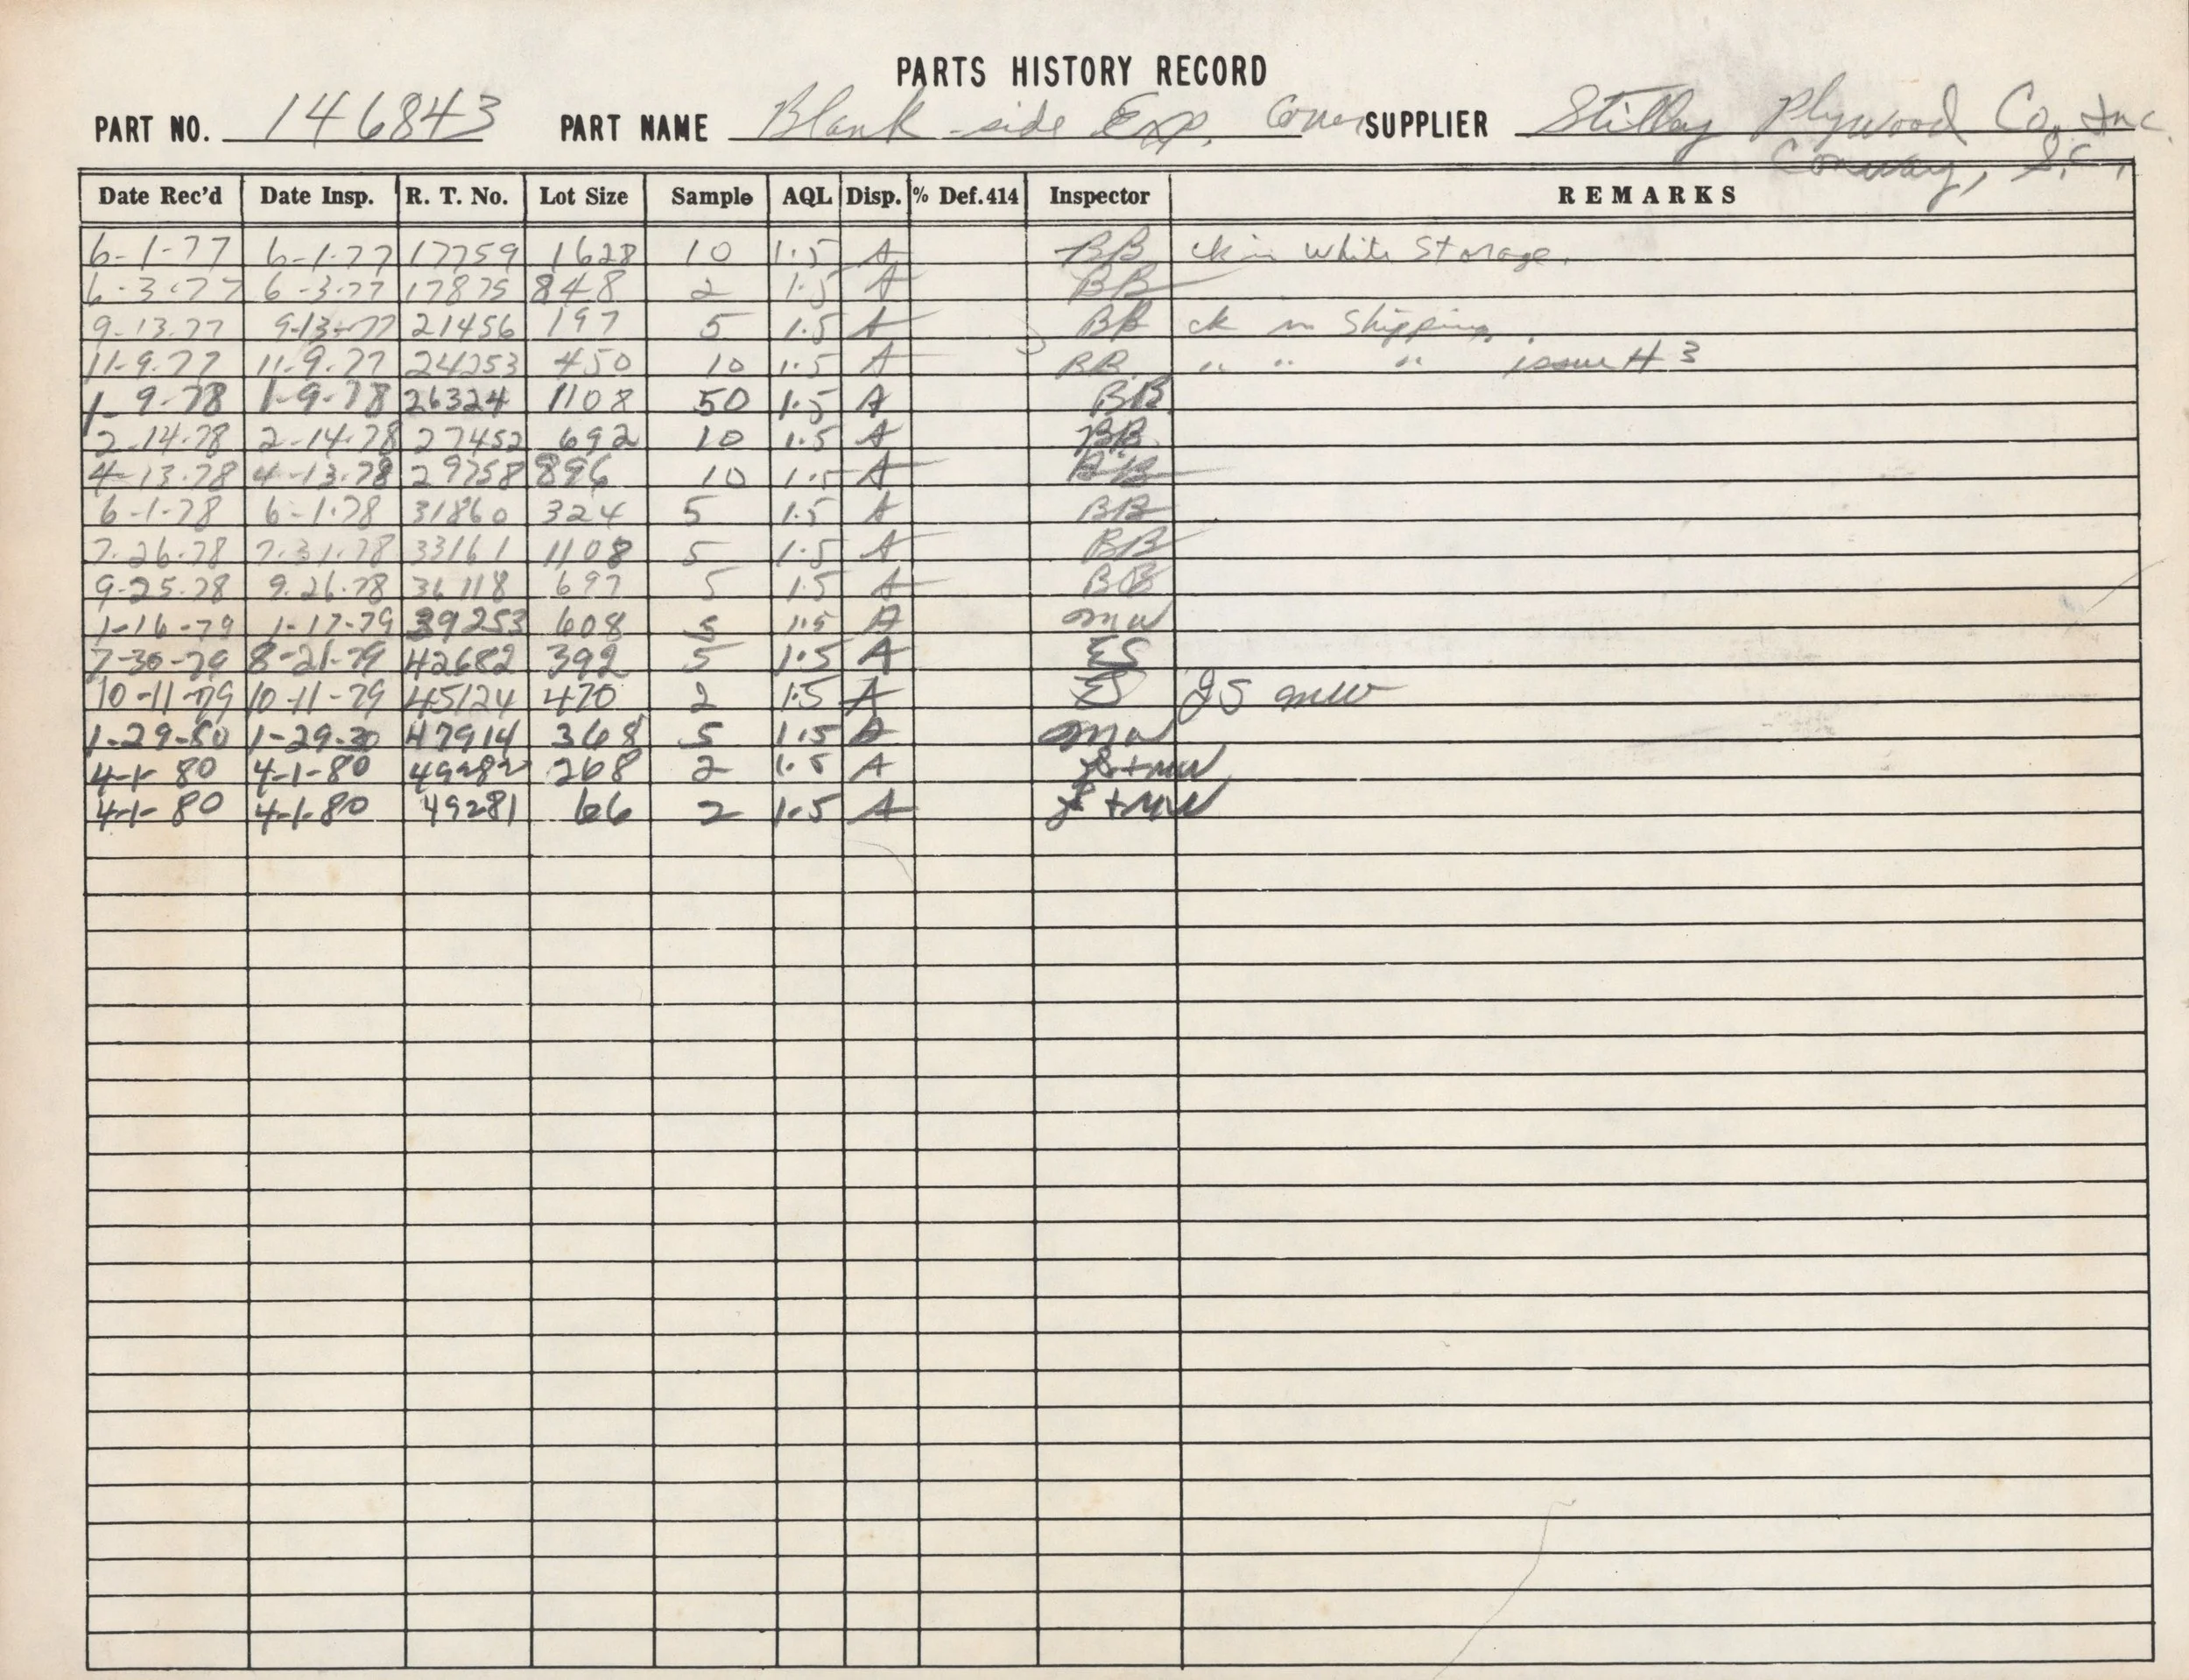 PARTS HISTORY RECORD
PART NO. 146843 PART NAME Blank side Exp. SUPPLIER Stilley Plywood Co. Inc.
Conway, S.C.
Date Rec'd Date Insp. R. T. No. Lot Size Sample AQL Disp. % Def. 414 Inspector REMARKS
6-1-77 6-1-77 17759 1628 10 1.5 A BB ck in White Storage.
6-3-77 6-3-77 17875 848 2 1.5 A BB
9-13-77 9-13-77 21456 197 5 1.5 A BB ck in Shipping.
11-9-77 11-9-77 24253 450 10 1.5 A BB. " " " issue # 3
1-9-78 1-9-78 26324 1108 50 1.5 A BB
2-14-78 2-14-78 27452 692 10 1.5 A BB.
4-13-78 4-13-78 29758 896 10 1.5 A BB
6-1-78 6-1-78 31860 324 5 1.5 A BB
7-26-78 7-31-78 33161 1108 5 1.5 A BB
9-25-78 9-26-78 36118 697 5 1.5 A BB
1-16-79 1-17-79 39253 608 5 1.5 A mw
7-30-79 8-21-79 42682 392 5 1.5 A ES
10-11-79 10-11-79 45124 470 2 1.5 A ES JS mw
1-29-80 1-29-80 47914 368 5 1.5 A mw
4-1-80 4-1-80 49282 268 2 1.5 A JS+MW
4-1-80 4-1-80 49281 66 2 1.5 A +MW